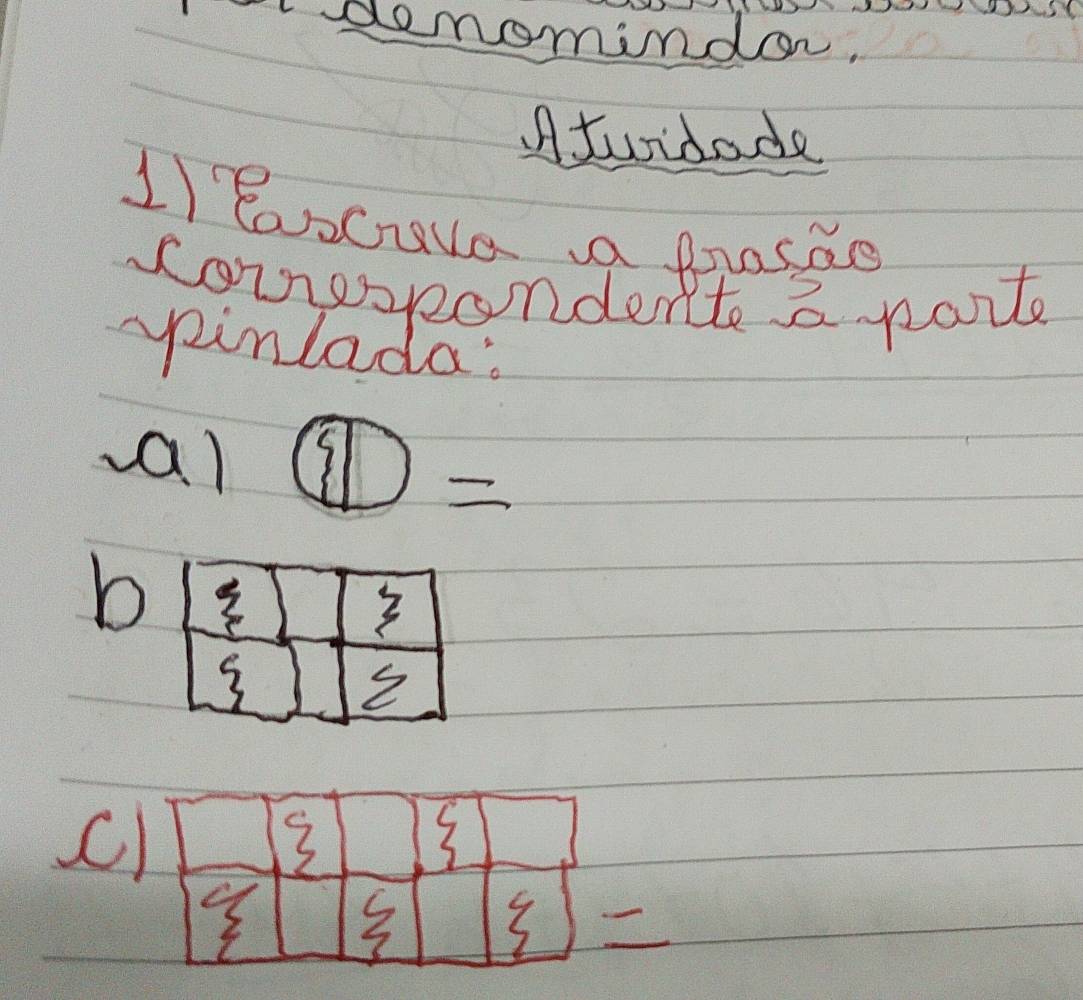 denomindor.
Atividade
1) Eascreva a fração
correspondente à parte
pinlada:
a) =
b
c) =